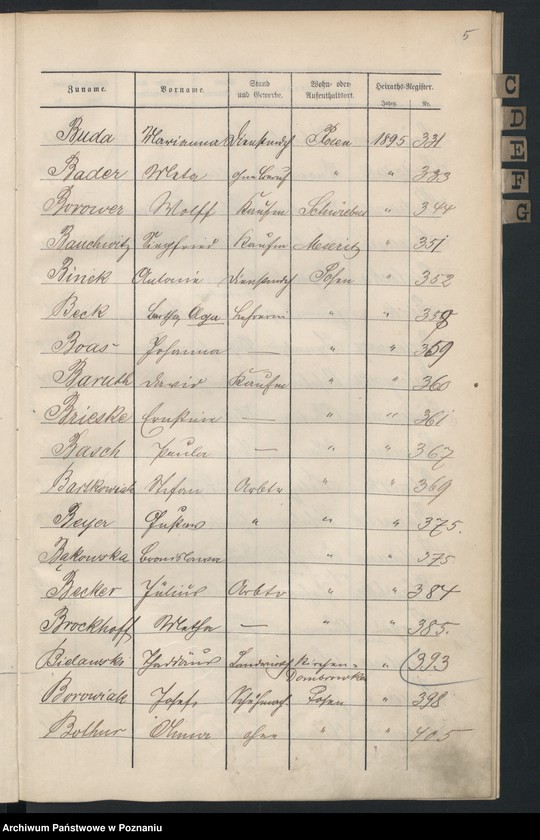 5
Zuname. Vorname. Stand und Gewerbe. Wohn- oder Aufenthaltsort. Heiraths-Register.
Jahrg. Nr.
Buda Marianna Dienstmdch Posen 1895 331
Bader Meta ohne Beruf " " 333
Borower Wolff Kaufm Schwiebus " 344
Bauchwitz Siegfried Kaufm Meseritz " 351
Binek Antonie Dienstmdch Posen " 352
Beck Bertha, Aga Lehrerin " " 358
Boas Johanna — " " 359
Baruth David Kaufm " " 360
Brieske Ernstine — " " 361
Basch Paula — " " 367
Bartkowiak Stefan Arbtr " " 369
Beyer Gustav " " " 375.
Bąkowska Bronislawa " " 375
Becker Julius Arbtr " " 384
Brockhoff Metha — " " 385.
Bielawski Thaddäus Landwirth Kirchen-Dombrowka " 393
Borowiak Josef Schuhmach. Posen " 398
ohne " " 405
C
D
E
F
G
Archiwum Państwowe w Poznaniu